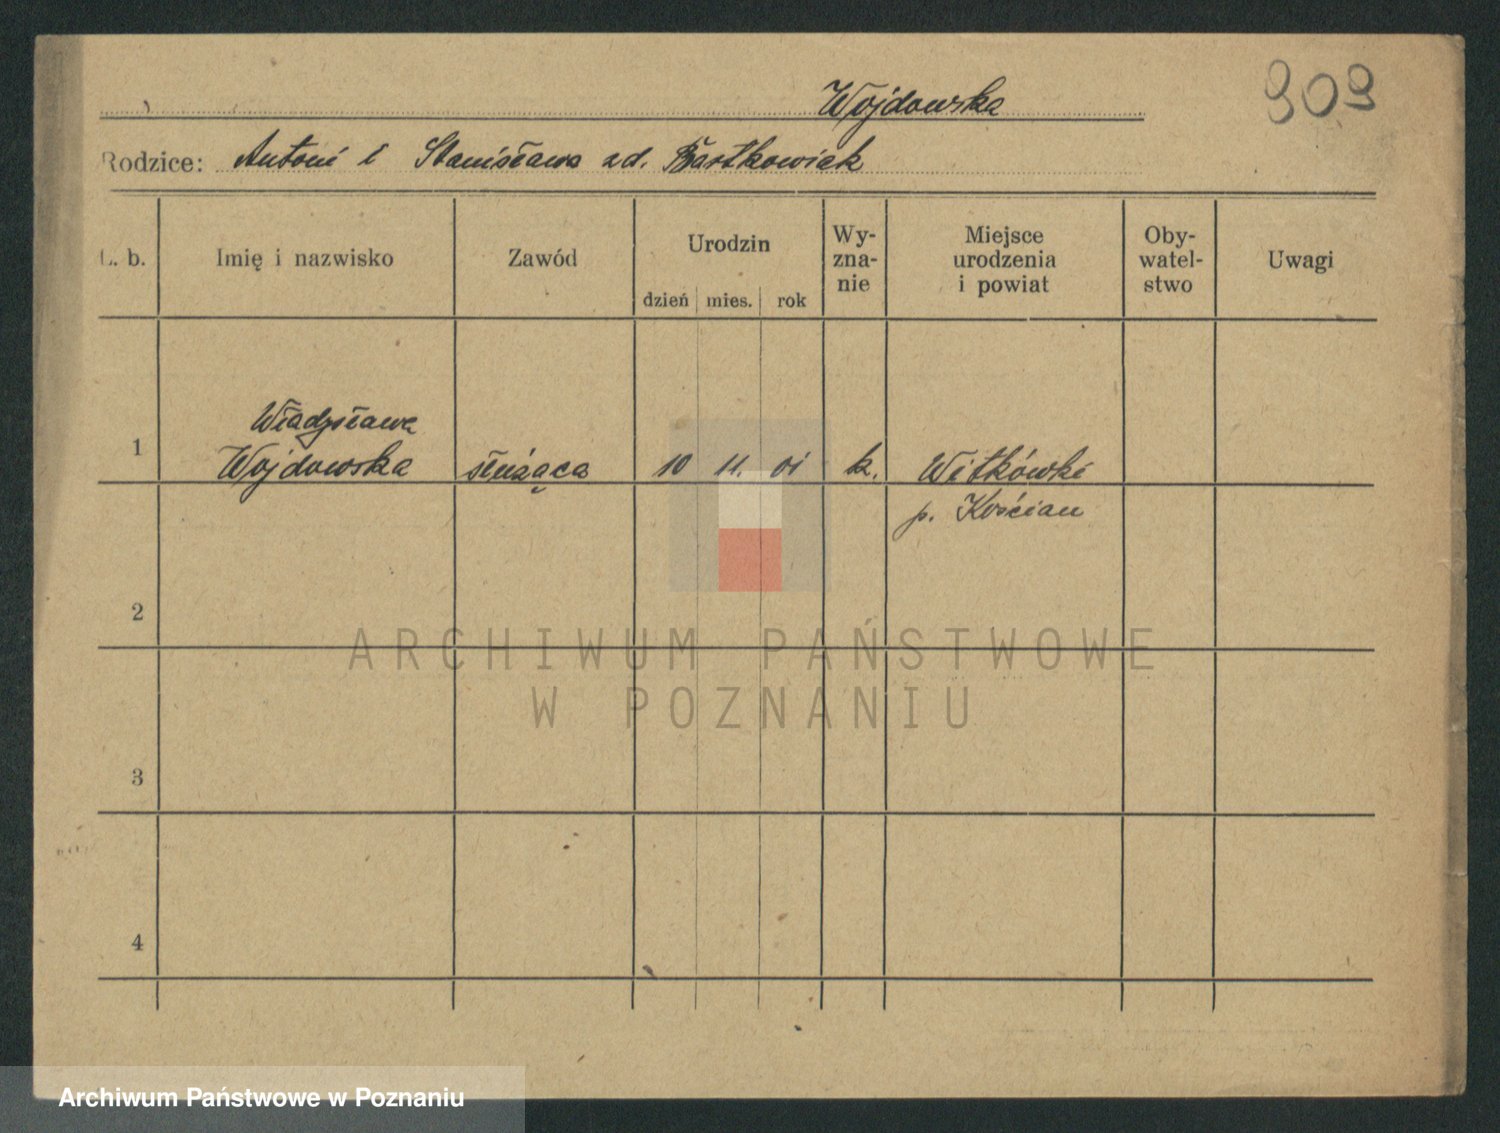 909
Wojdowska
Rodzice: Antoni i Stanisława zd. Bartkowiak
L. b.
Imię i nazwisko
Zawód
Urodzin
dzień mies. rok
Wy-
zna-
nie
Miejsce
urodzenia
i powiat
Oby-
watel-
stwo
Uwagi
1
Władysława
Wojdowska
służąca
10 11. 01
k.
Witkówki
p. Kościan
2
3
4
ARCHIWUM PAŃSTWOWE
W POZNANIU
Archiwum Państwowe w Poznaniu